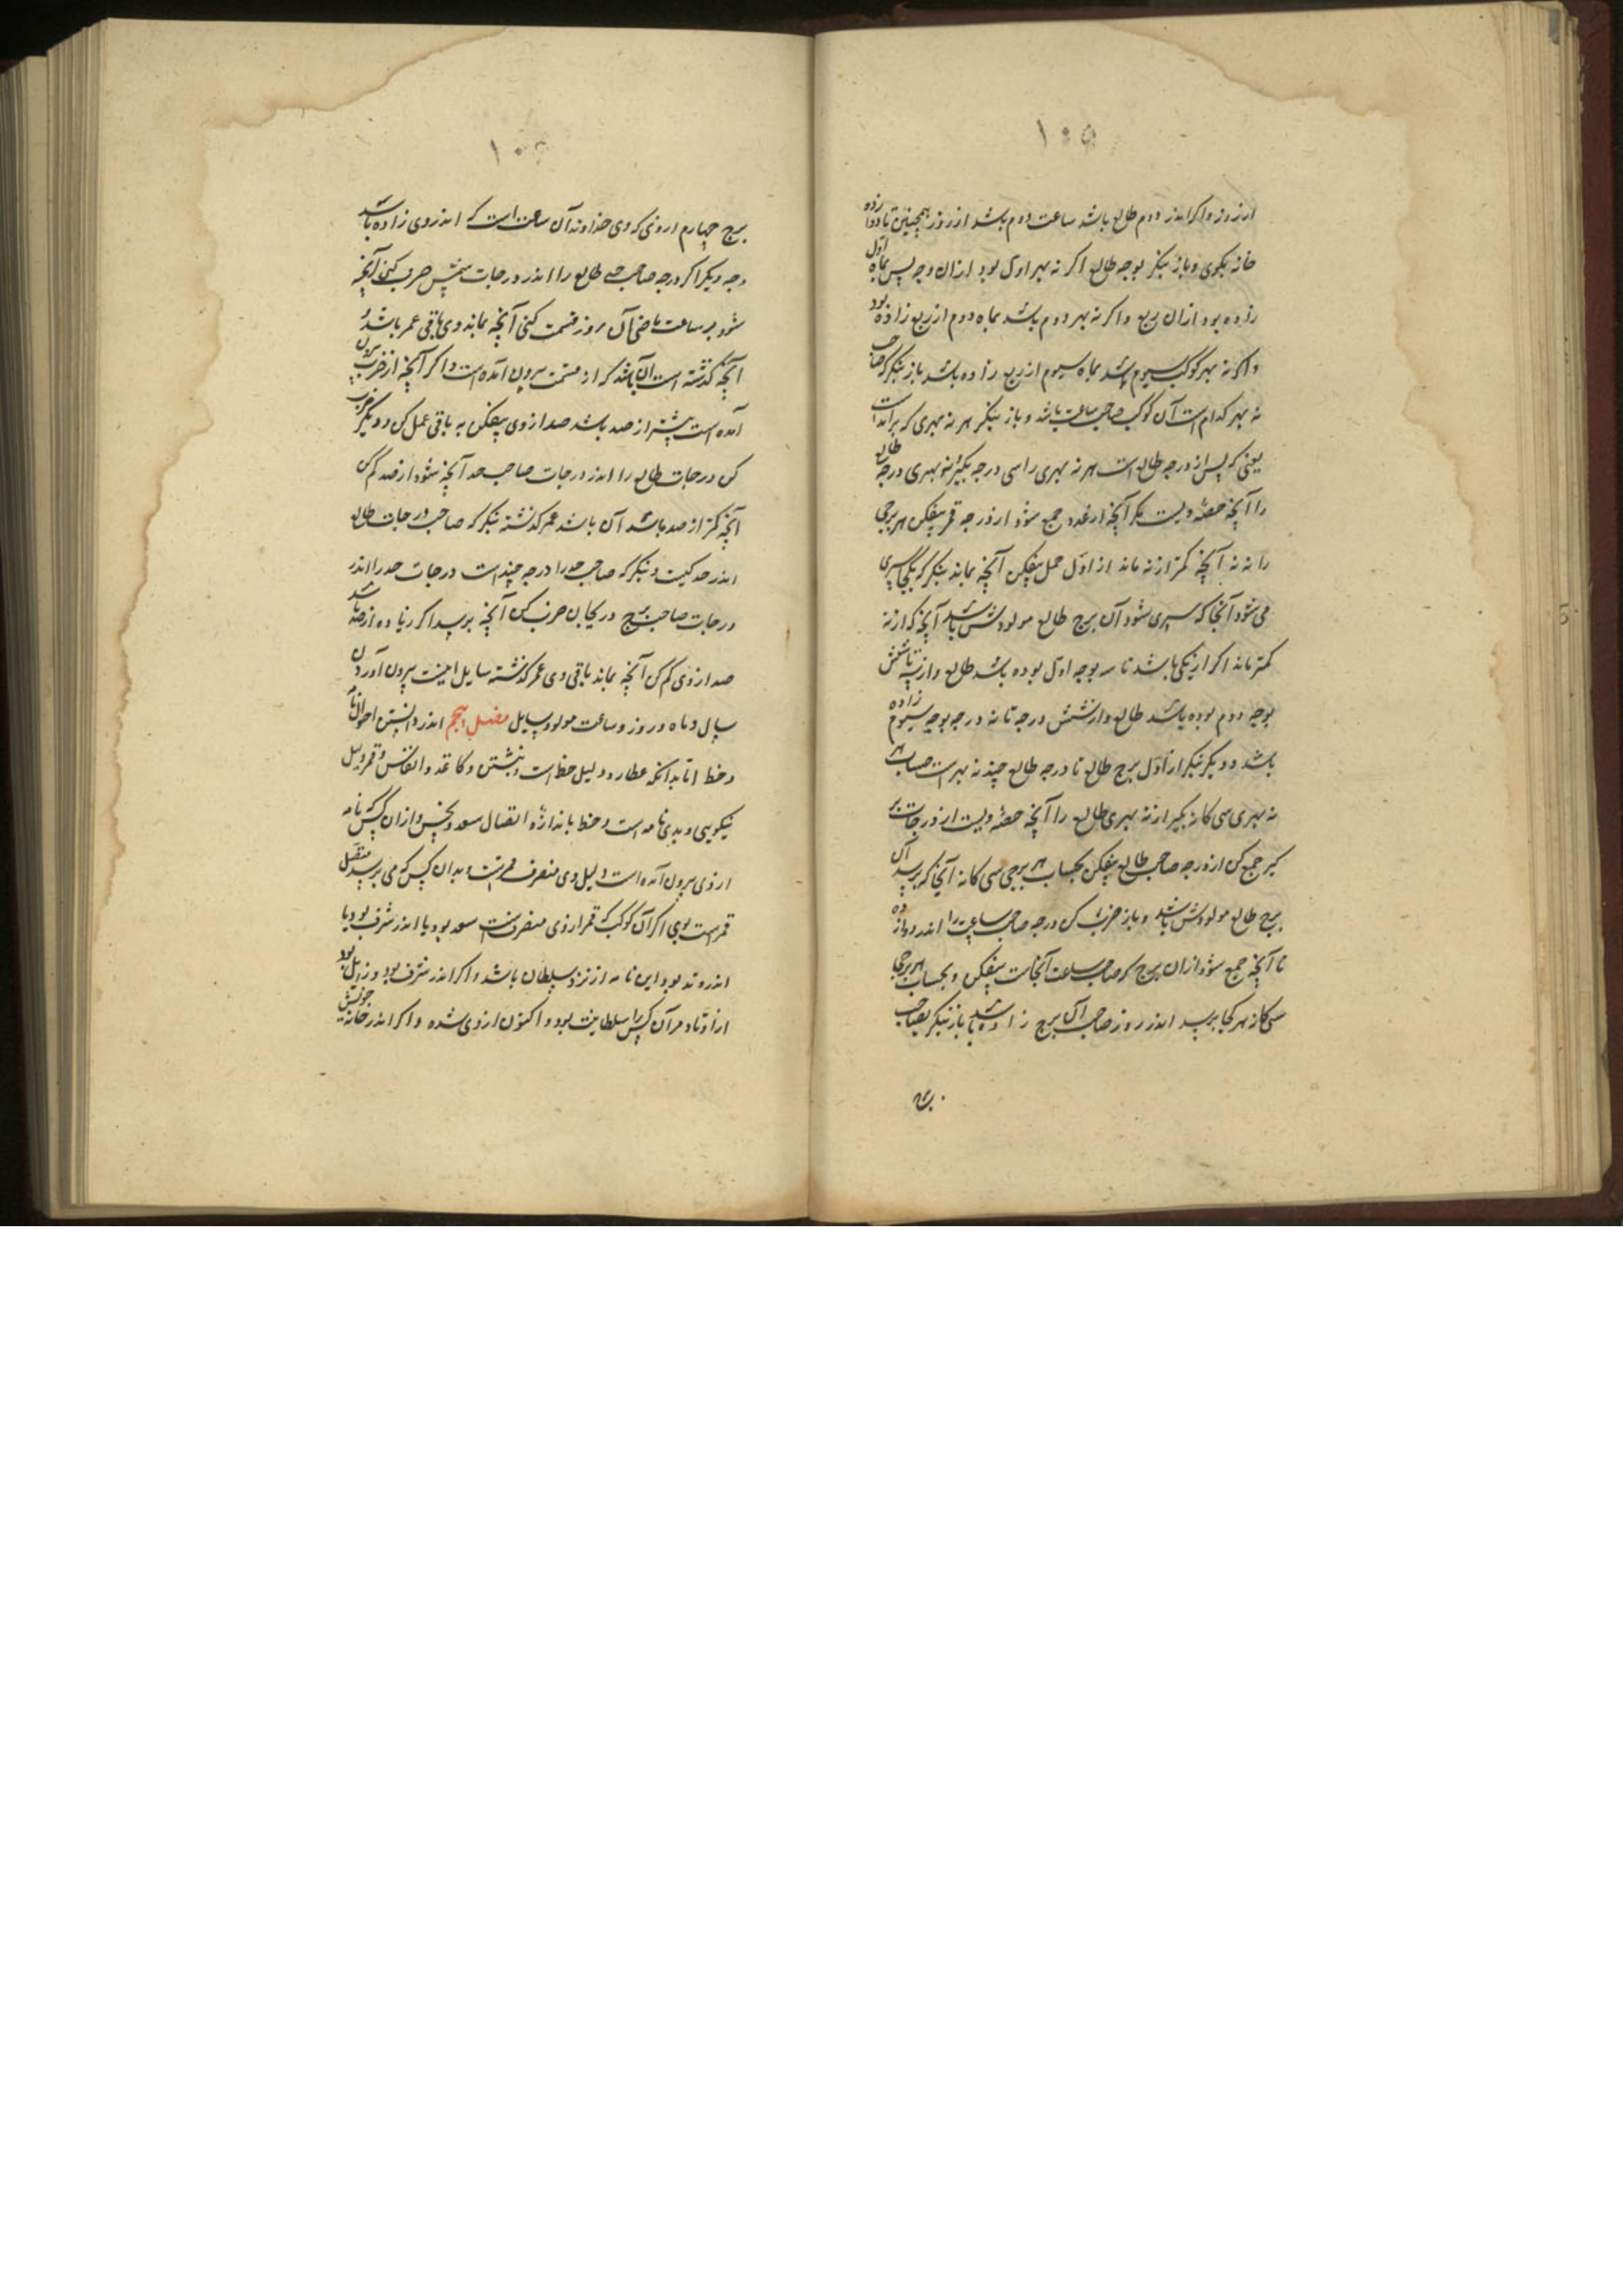 ۱۰۵
از روز و اگر اندر دوم طالع باشد ساعت دوم باشد از روز همچنین تا دوازده
خانه بگوی و باز بنگر بوجه طالع اگر نه بهر اول بود از آن وجه پس بماه اول
زاده بود از آن ربع و اگر نه بهر دوم باشد بماه دوم از ربع زاده بود
و اگر نه بهر کوکب سیوم باشد بماه سیوم از ربع زاده باشد باز بنگر که صاحب
نه بهر کدام است آن کوکب صاحب ساعت باشد و باز بنگر هر نه بهری که برآمده است
یعنی که پس از درجه طالع است هر نه بهری را سی درجه بگیر نه بهری درجه طالع
را آنچه حصه ویست بگیر آنچه از عدد جمع شود از درجه قمر بیفکن هر برجی
را نه نه آنچه کمتر از نه ماند از اول حمل بیفکن آنچه بماند بنگر که بکجا سپری
می شود آنجا که سپری شود آن برج طالع مولودش باشد آنچه که از نه
کمتر ماند اگر از یکی باشد تا سه بوجه اول بوده باشد طالع و از سه تا شش
بوجه دوم بوده باشد طالع و از شش درجه تا نه درجه بوجه سیوم زاده
باشد و دیگر بنگر از اول برج طالع تا درجه طالع چند نه بهر است حساب هر
نه بهری سی کان بگیر از نه بهری طالع را آنچه حصه ویست از درجات بر
گیر جمع کن از درجه صاحب طالع بیفکن بحساب هر برجی سی کانه آنجا که برسد آن
برج طالع مولودش باشد و باز ضرب کن درجه صاحب ساعت را اندر دوازده
تا آنچه جمع شود از آن برج که صاحب ساعت آنجاست بیفکن و بحساب هر برجی
سی کانه هر کجا برسد اندر روز صاحب آن برج زاده باشد باز بنگر بصاحب
برج چهارم از وی که وی خداوند آن ساعت است که اندر وی زاده باشد
وجه دیگر اگر درجه صاحب طالع را اندر درجات ضرب کنی آنچه
شود بر ساعت ماضی آن روز قسمت کنی آنچه بماند وی باقی عمر باشد و
آنچه گذشته است آن باشد که از قسمت بیرون آمده است و اگر آنچه از ضرب بیرون
آمده است بیشتر از صد باشد صد از وی بیفکن به باقی عمل کن و دیگر ضرب
کن درجات طالع را اندر درجات صاحب حد آنچه شود از صد کم کن
آنچه کمتر از صد باشد آن باشد عمر گذشته بنگر که صاحب درجات طالع
اندر حد کیست و بنگر که صاحب حد را درجه چند است درجات حد را اندر
درجات صاحب برج در یکجا ضرب کن آنچه برسد اگر زیاده از صد باشد
صد از وی کم کن آنچه بماند باقی وی عمر گذشته سایل اینست بیرون آوردن
سال و ماه و روز و ساعت مولود سایل فصل پنجم اندر دانستن احوال نامه
و خط اما بدانکه عطارد دلیل خط است و نبشتن و کاغد و انقاس و قمر دلیل
نیکویی و بدی نامه است و خط باندازه اتصال سعد و نحس و از آن کس که نامه
از وی بیرون آمده است دلیل وی منصرف قمرست و بدان کس که می برسد متصل
قمر است بوی اگر آن کوکب که قمر از وی منصرفست سعد بود یا اندر شرف بود یا
اندر وتد بود این نامه از نزد سلطان باشد و اگر اندر شرف بود و زایل بود
از اوتاد مر آن کس را سلطانیت بود و اکنون از وی شده و اگر اندر خانه خویش